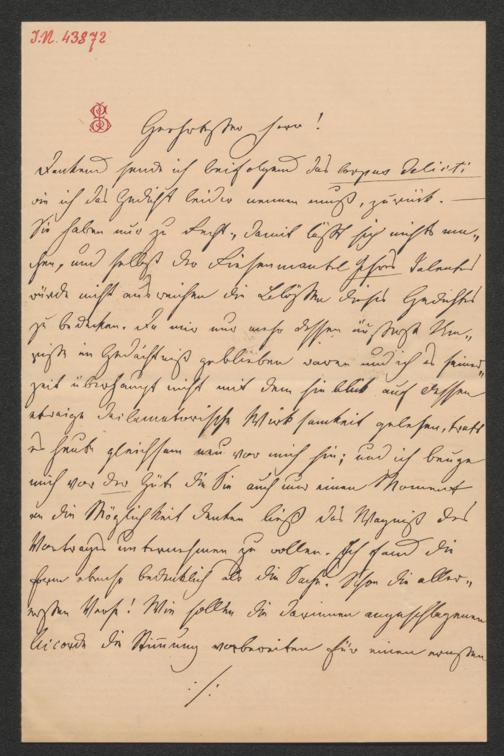 I.N. 43872
Geehrtester Herr!
Dankend sende ich beifolgend das corpus delicti
wie ich das Gedicht leider nennen muß, zurück. —
Sie haben nur zu Recht, damit läßt sich nichts ma-
chen, und selbst der Riesenmantel Ihres Talentes
würde nicht ausreichen die Blößen dieses Gedichtes
zu bedecken. Da mir nur mehr dessen äußerste Um-
risse im Gedächtniß geblieben waren und ich es seiner-
zeit überhaupt nicht mit dem Hinblick auf dessen
etwaige declamatorische Wirksamkeit gelesen, trat
es heute gleichsam neu vor mich hin; und ich beuge
mich vor der Güte die Sie auch nur einen Moment
an die Möglichkeit denken ließ das Wagniß des
Vortrages unternehmen zu wollen. Ich fand die
Form ebenso bedenklich als die Sache. Schon die aller-
ersten Verse! Wie sollen die darinnen angeschlagenen
Accorde die Stimmung vorbereiten für einen ernsten
./.